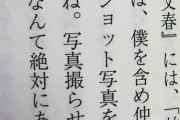 文春』には、「
は、僕を含め仲
ショット写真を
ね。写真撮らせ
なんて絶対にあ